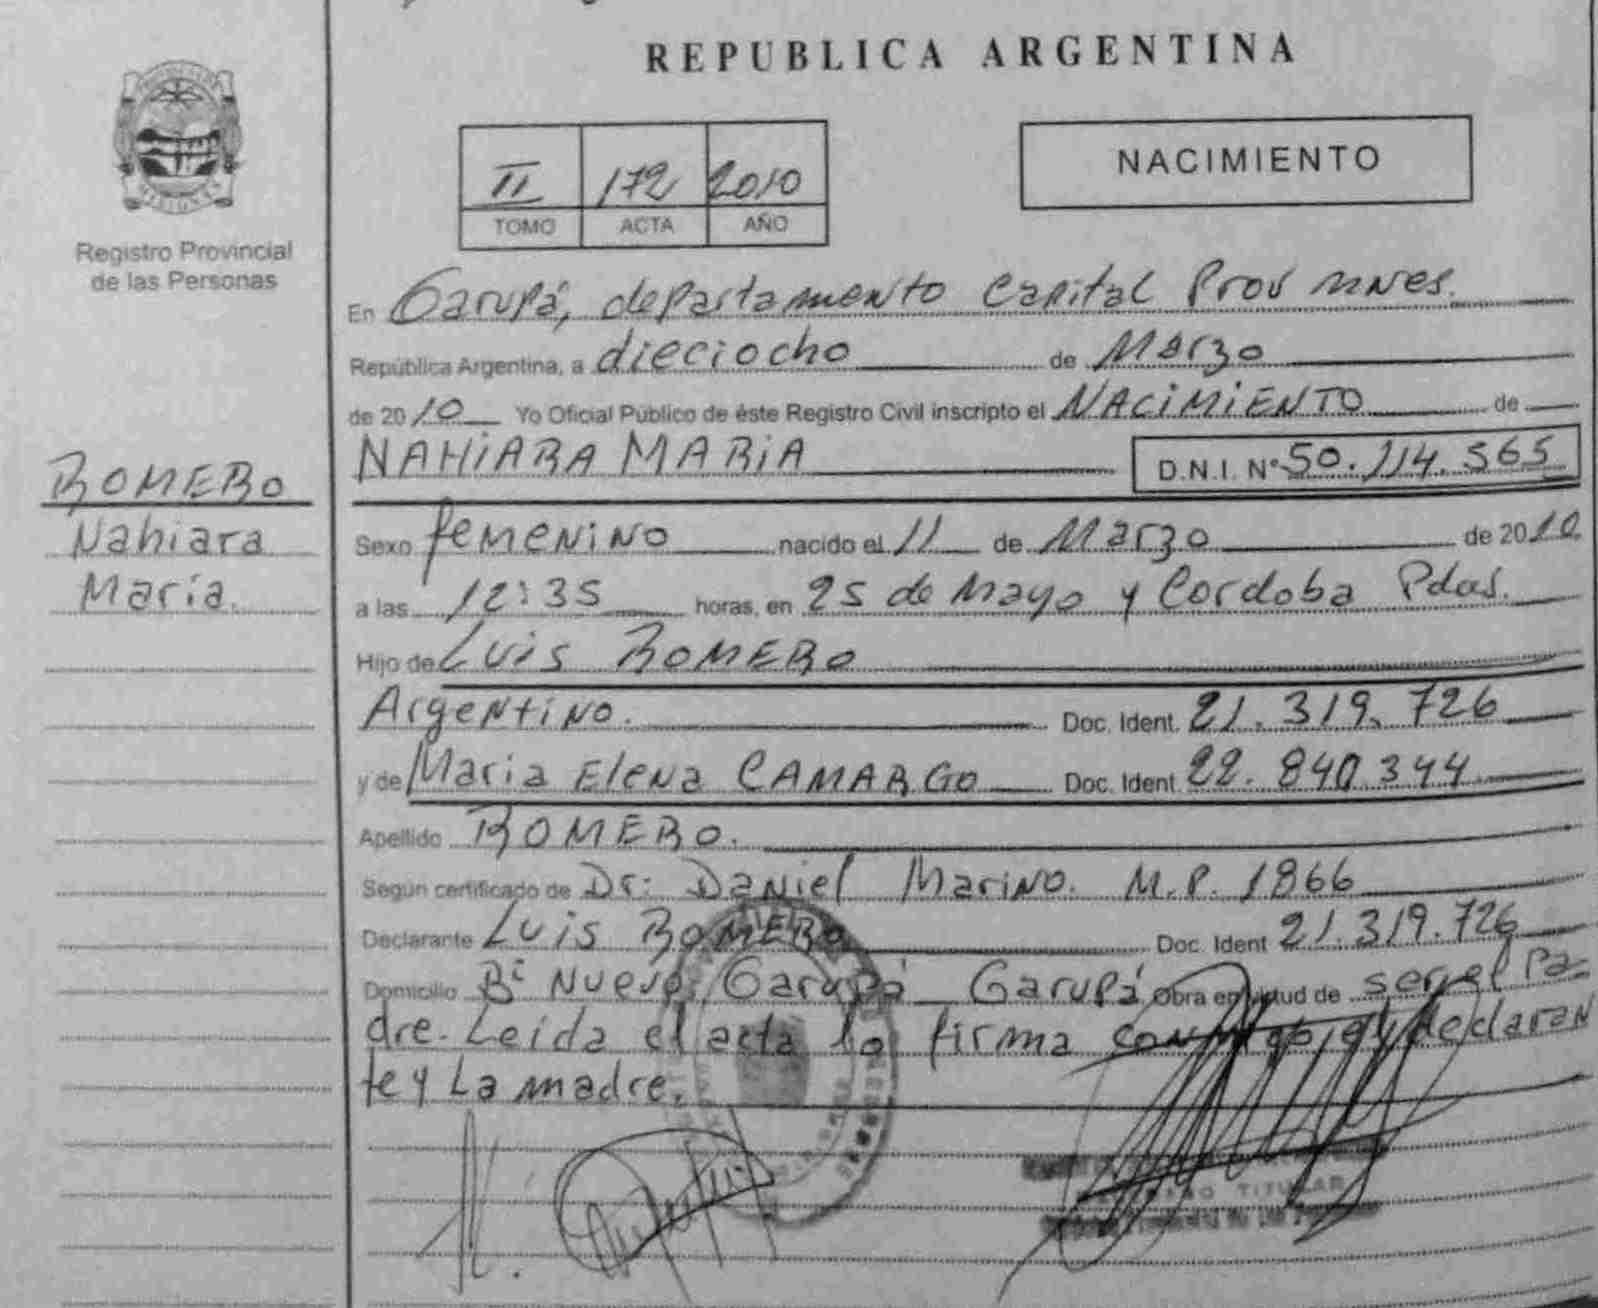 REPUBLICA ARGENTINA
MISIONES
Registro Provincial
de las Personas
II 172 2010
TOMO ACTA AÑO
NACIMIENTO
En Garupá, departamento Capital Prov mnes.
República Argentina, a dieciocho de Marzo
de 2010 Yo Oficial Público de éste Registro Civil inscripto el NACIMIENTO de
NAHIARA MARIA D.N.I. Nº 50.114.565
ROMERO
Nahiara
María.
Sexo femenino nacido el 11 de Marzo de 2010.
a las 12:35 horas, en 25 de Mayo y Cordoba Pdas.
Hijo de Luis ROMERO
Argentino. Doc. Ident. 21.319.726
y de Maria Elena CAMARGO Doc. Ident. 22.840.344
Apellido ROMERO.
Según certificado de Dr: Daniel Marino. M.P. 1866
Declarante Luis ROMERO Doc. Ident 21.319.726
Domicilio Bº Nuevo Garupá Garupá Obra en virtud de ser el Pa-
dre. Leida el acta la firma conmigo el declaran
te y La madre.
TITULAR